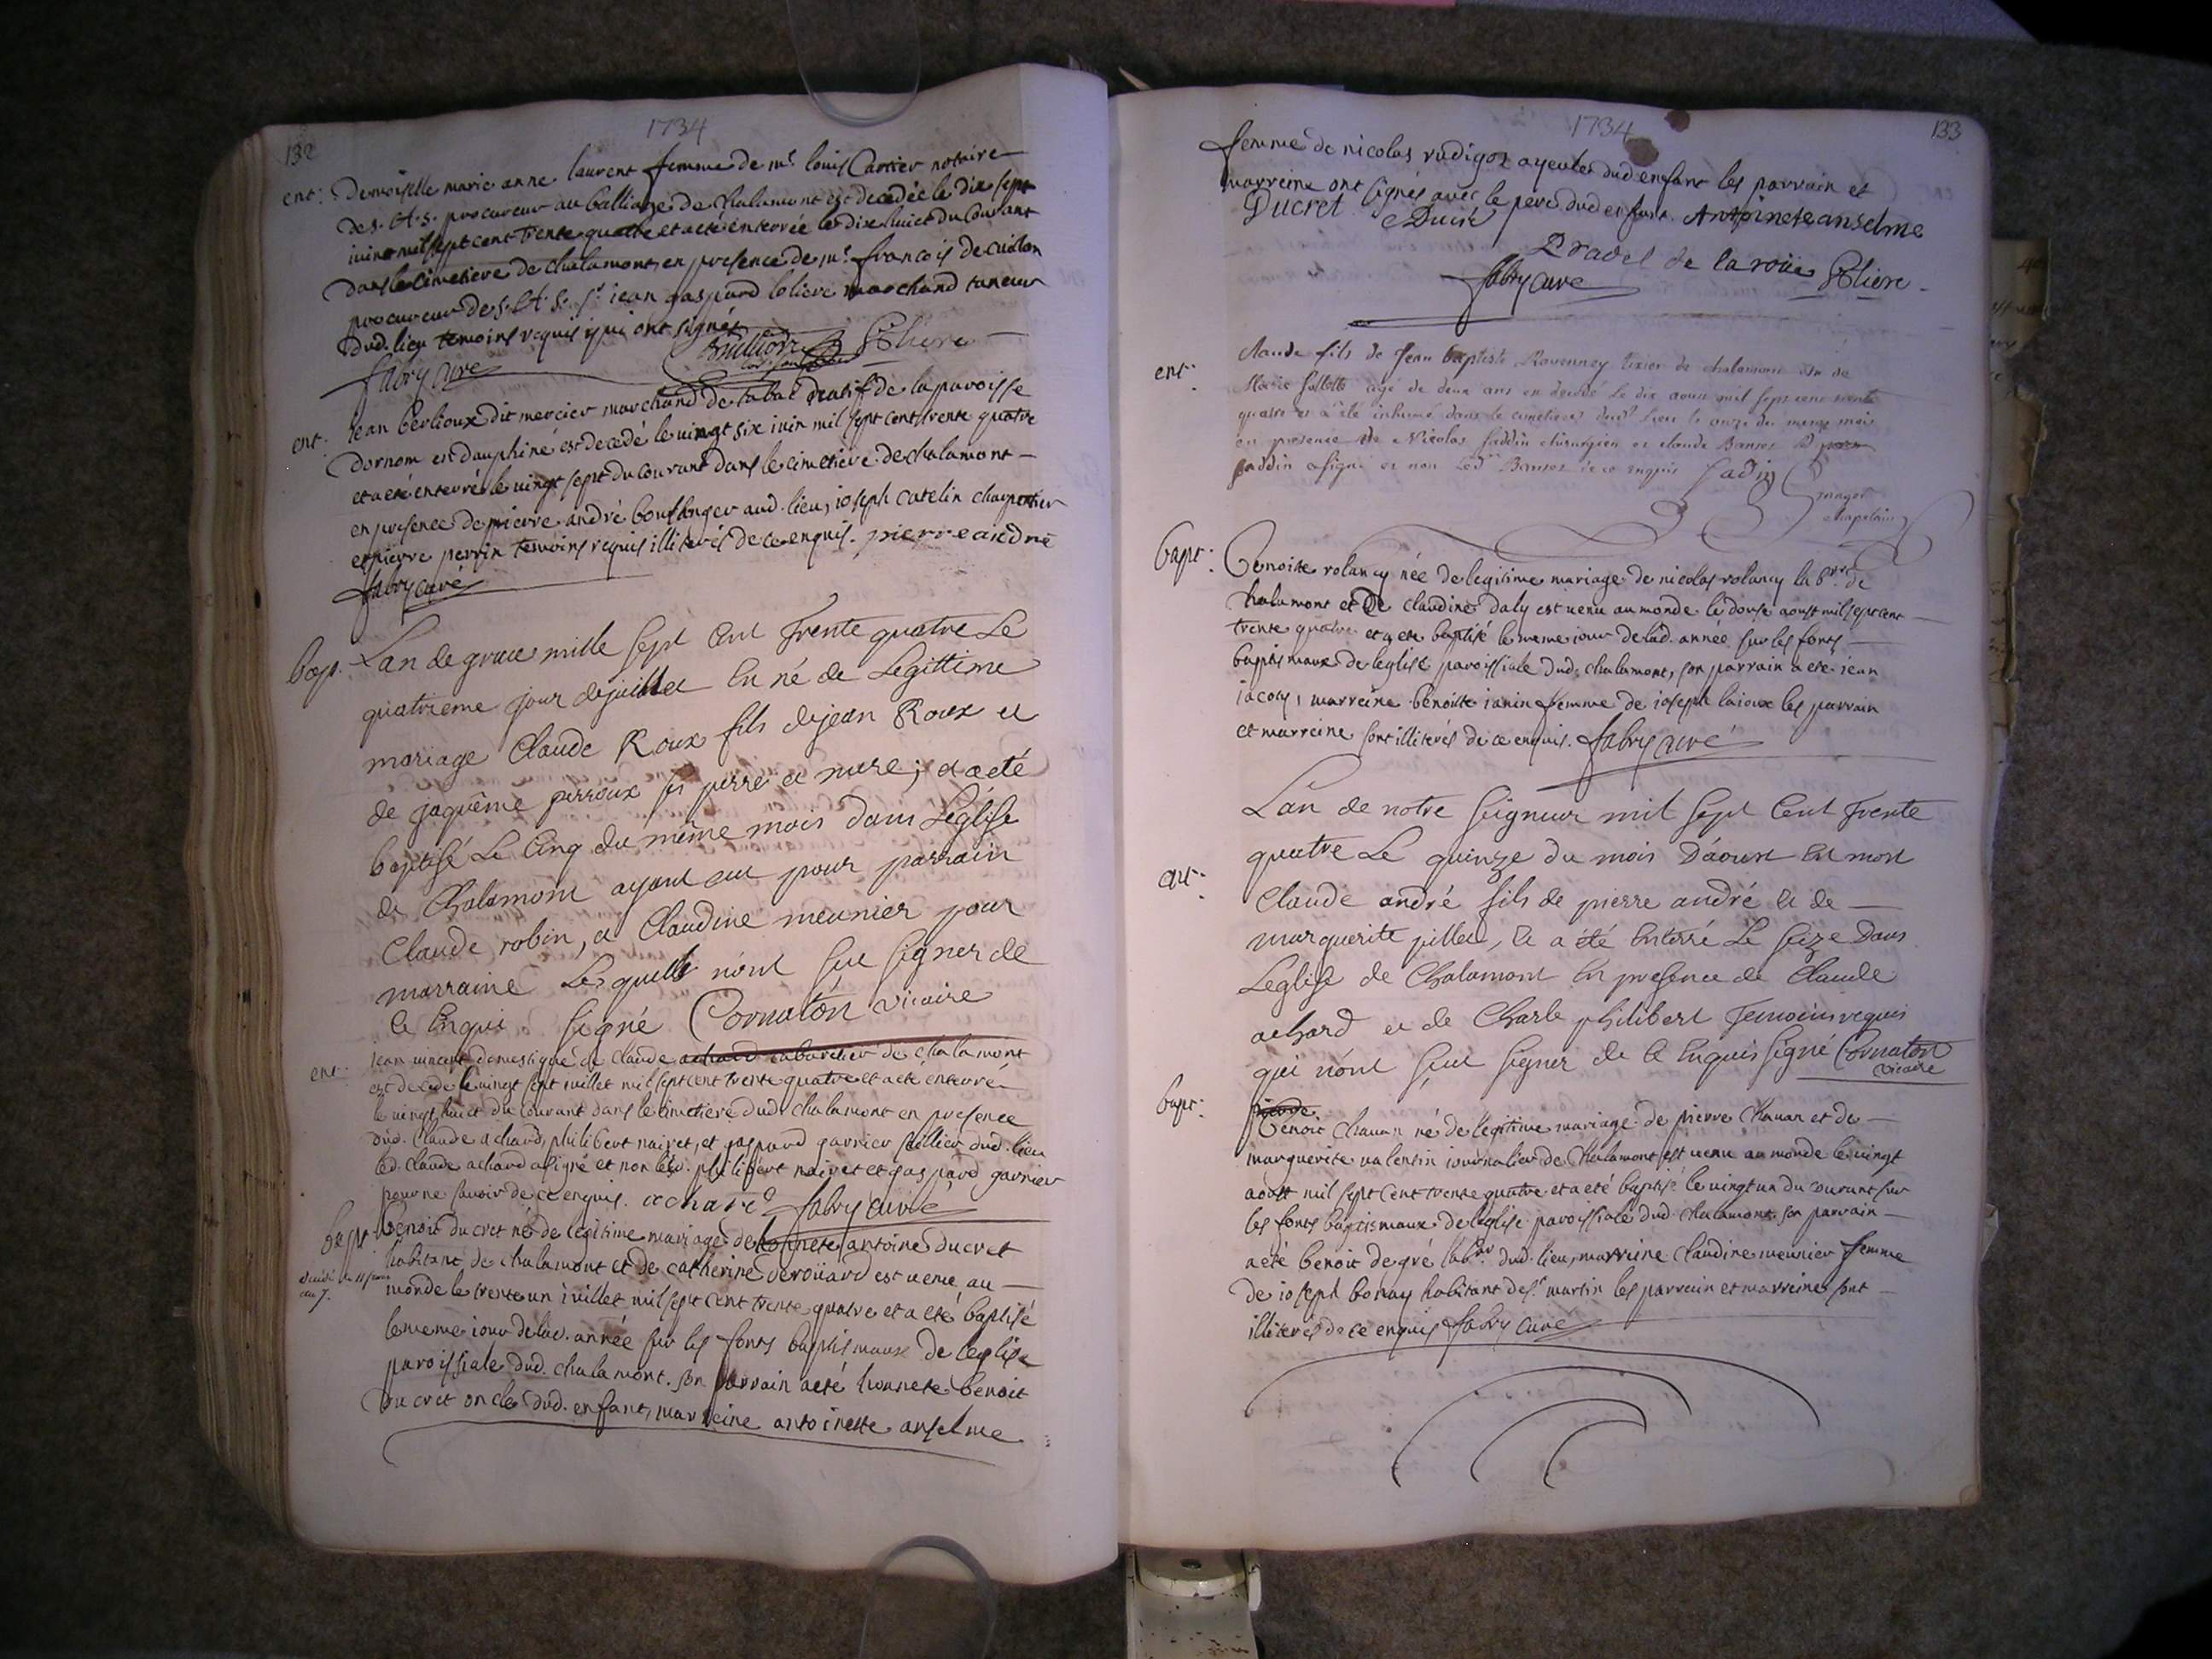 132
1734
ent: Demoiselle marie anne laurent femme de mr. louis Cartier notaire
de s. A. s. procureur au balliage de chalamont est decedée le dix sept
iuin mil sept cent trente quatre et a eté enterrée le dix huict du Courant
dans le cimetiere de chalamont, en presence de mr. francois de
procureur de s. A. S. sr. iean gaspard loliere marchand taneur
dud. lieu temoins requis qui ont signés
Loliere
fabry curé
ent: iean berlioux dit mercier marchand de tabac natif de la paroisse
dornom en dauphiné est decedé le vingt six iuin mil sept cent trente quatre
et a eté enterré le vingt sept du courant dans le cimetiere de chalamont
en presence de pierre andré boulanger aud. lieu, ioseph catelin charpentier
et pierre perrin temoins requis illiterés de ce enquis. pierre andre
fabry curé
bap. Lan de grace mille sept Cent trente quatre Le
quatrieme jour de juillet En né de Legittime
mariage Claude Roux fils de jean Roux et
de jaquême perroux ses perre et mere; et a eté
baptisé Le Cinq du même mois dans L'église
de Chalamont ayant eut pour parrain
Claude robin, et Claudine meunier pour
marraine Lesquells n'ont sut signer de
Ce Enquis. Signé Cornatón vicaire
ent: iean vincent domestique de Claude achard cabaretier de chalamont
est decedé le vingt sept iuillet mil sept cent trente quatre et a eté enterré
le vingt huict du Courant dans le cimetiere dud. chalamont en presence
dud. Claude achard, philibert nairet, et gaspard garnier dud. lieu
led. claude achard a signé et non led. philibert nairet et gaspard garnier
pour ne savoir de ce enquis. achard fabry curé
bapt benoit ducret né de legitime mariage de honnete antoine ducret
habitant de chalamont et de catherine derouard est venu au
monde le trente un iuillet mil sept cent trente quatre et a eté baptisé
le meme iour de lad. année sur les fonts baptismaux de leglise
paroissiale dud. chalamont. son parrain a eté honnete benoit
ducret oncle dud. enfant, marreine antoinette anselme
1734
133
femme de nicolas rudigoz ayeules dud. enfant les parrain et
marreine ont signés avec le pere dud. enfant. Antoinete anselme
Ducret Ducré
Pradel de la roüe Loliere
fabry curé
ent: claude fils de Jean baptiste Ravenney tixier de chalamont et de
Marie agé de deux ans est decedé le dix aoust mil sept cent trente
quatre et a été inhumé dans le cimetiere dud. lieu le onze du meme mois
en presence de Nicolas faddin chirurgien et claude
faddin a signé et non led. de ce enquis fadin
chapelain
bapt: benoite rolancy née de legitime mariage de nicolas rolancy lab.r de
chalamont et de claudine daly est venu au monde le douse aoust mil sept cent
trente quatre et a eté baptisé le meme iour de lad. année sur les fonts
baptismaux de leglise paroissiale dud. chalamont, son parrain a eté iean
iacoly, marreine benoite ianin femme de ioseph laioux les parrain
et marreine sont illiterés de ce enquis. fabry curé
L'an de notre Seigneur mil sept Cent trente
quatre Le quinze du mois D'aoust Est mort
Claude andré fils de pierre andré et de
marguerite pillet, et a été Enterré Le seize Dans
L'eglise de Chalamont En presence de Claude
achard et de Charle philibert temoins requis
qui n'ont sçut signer de Ce Enquis signé Cornaton
vicaire
bapt:
benoit chavan né de legitime mariage de pierre chavan et de
marguerite valentin iournalier de chalamont est venu au monde le vingt
aoust mil sept cent trente quatre et a eté baptisé le vingt un du courant sur
les fonts baptismaux de leglise paroissiale dud. chalamont. son parrain
a eté benoit degré lab.r dud. lieu, marreine claudine meunier femme
de ioseph bonay habitant de st. martin les parrein et marreine sont
illiterés de ce enquis fabry curé